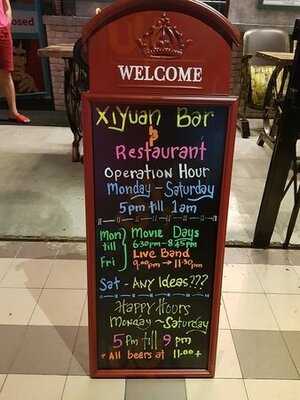 WELCOME
XiYuan Bar
&
Restaurant
Operation Hour
Monday - Saturday
5pm till 1am
Mon Movie Days
till 6:30pm - 8:45pm
Live Band
Fri 9:00pm → 11:30pm
Sat - Any Ideas???
Happy Hours
Monday ~ Saturday
5pm till 9pm
* All beers at 11.00+